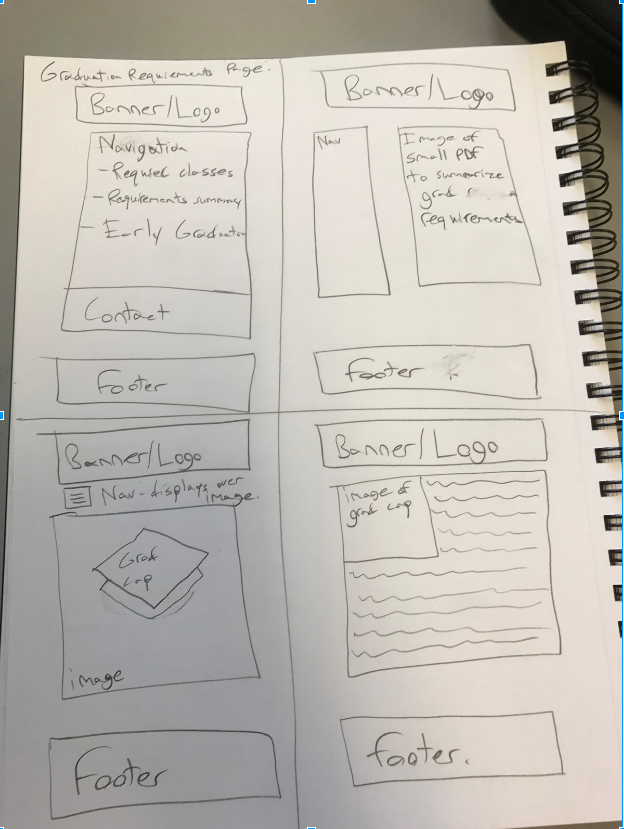 Graduation Requirements Page.
Banner/Logo
Navigation
- Requried classes
- Requirements summary
- Early Graduation
Contact
Footer
Banner/Logo
Nav
Image of
small PDF
to summarize
grad
requirements
footer
Banner/Logo
Nav - displays over
image.
Grad
cap
image
Footer
Banner/Logo
image of
grad cap
footer.